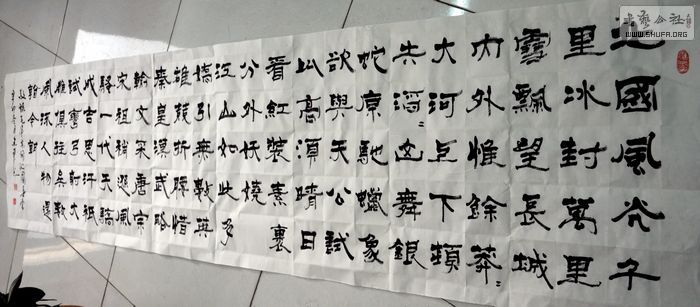 北國風光千
里冰封萬里
雪飄望長城
内外惟餘莽〻
大河上下頓
失滔〻山舞銀
蛇原馳蠟象
欲與天公試
比高須晴日
看紅裝素裹
分外妖嬈
江山如此多
嬌引無數英
雄競折腰惜
秦皇漢武略
輸文采唐宗
宋祖稍遜風
騷一代天驕
成吉思汗祇
識彎弓射大
雕俱往矣數
風流人物還
看今朝
书艺公社
WWW.SHUFA.ORG